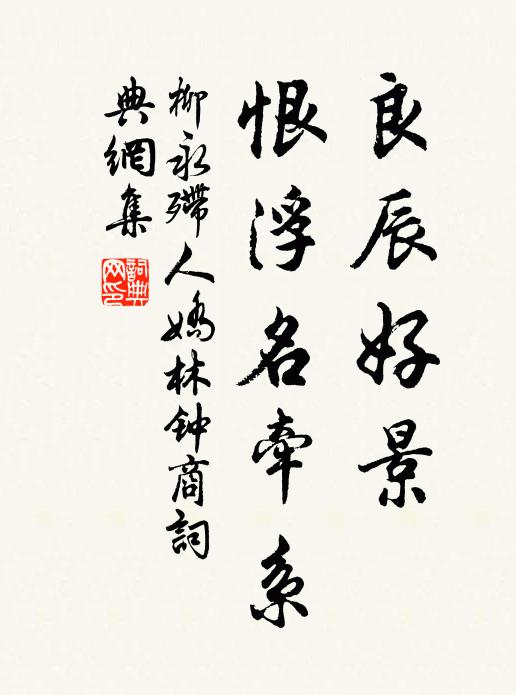 良辰好景
恨浮名牽系
柳永殢人嬌林钟商詞
典網集
詞典网印